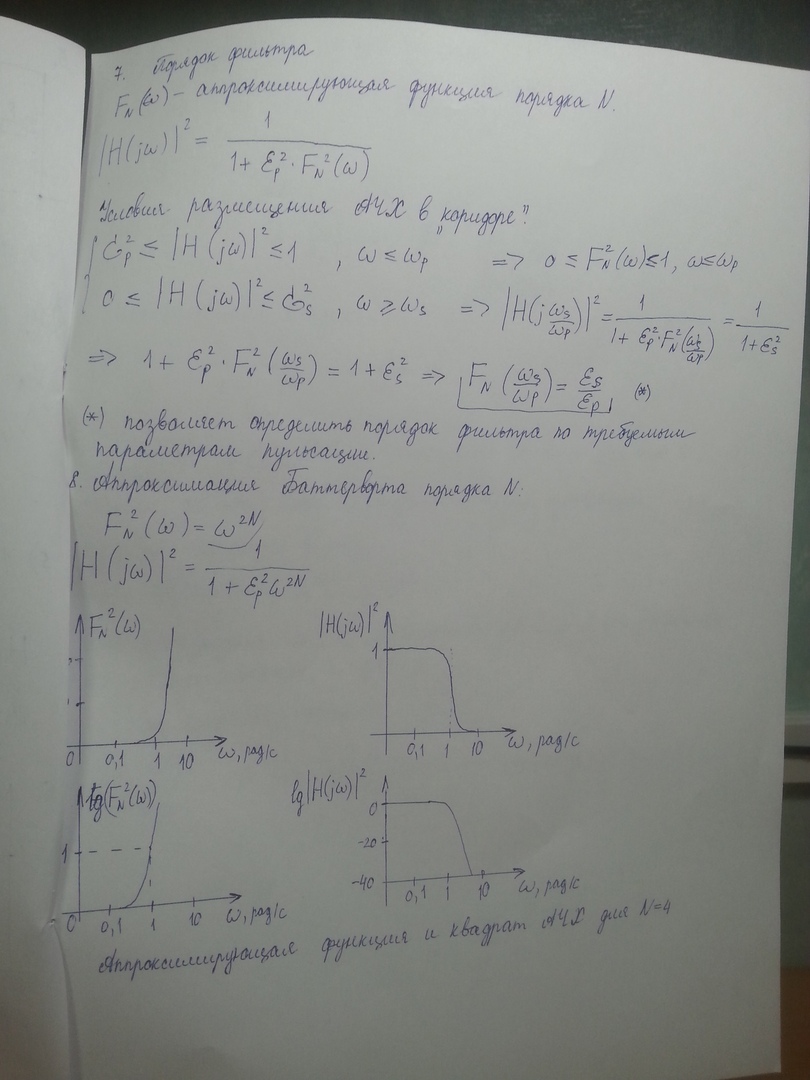 7. Порядок фильтра
F_N(ω) – аппроксимирующая функция порядка N.
|H(jω)|² = 1 / (1 + ε_p² · F_N²(ω))
Условия размещения АЧХ в „коридоре":
G_p² ≤ |H(jω)|² ≤ 1 , ω ≤ ω_p => 0 ≤ F_N²(ω) ≤ 1, ω ≤ ω_p
0 ≤ |H(jω)|² ≤ G_s² , ω ⩾ ω_s => |H(j ω_s/ω_p)|² = 1 / (1 + ε_p² · F_N²(ω_s/ω_p)) = 1 / (1 + ε_s²)
=> 1 + ε_p² · F_N²(ω_s/ω_p) = 1 + ε_s² => F_N(ω_s/ω_p) = ε_s/ε_p (*)
(*) позволяет определить порядок фильтра по требуемым
параметрам пульсации.
8. Аппроксимация Баттерворта порядка N:
F_N²(ω) = ω^2N
|H(jω)|² = 1 / (1 + ε_p² ω^2N)
F_N²(ω) |H(jω)|²
1
0 0,1 1 10 ω, рад/с 0,1 1 10 ω, рад/с
lg(F_N²(ω)) lg|H(jω)|²
0
-20
1
-40
0 0,1 1 10 ω, рад/с 0,1 1 10 ω, рад/с
Аппроксимирующая функция и квадрат АЧХ для N=4